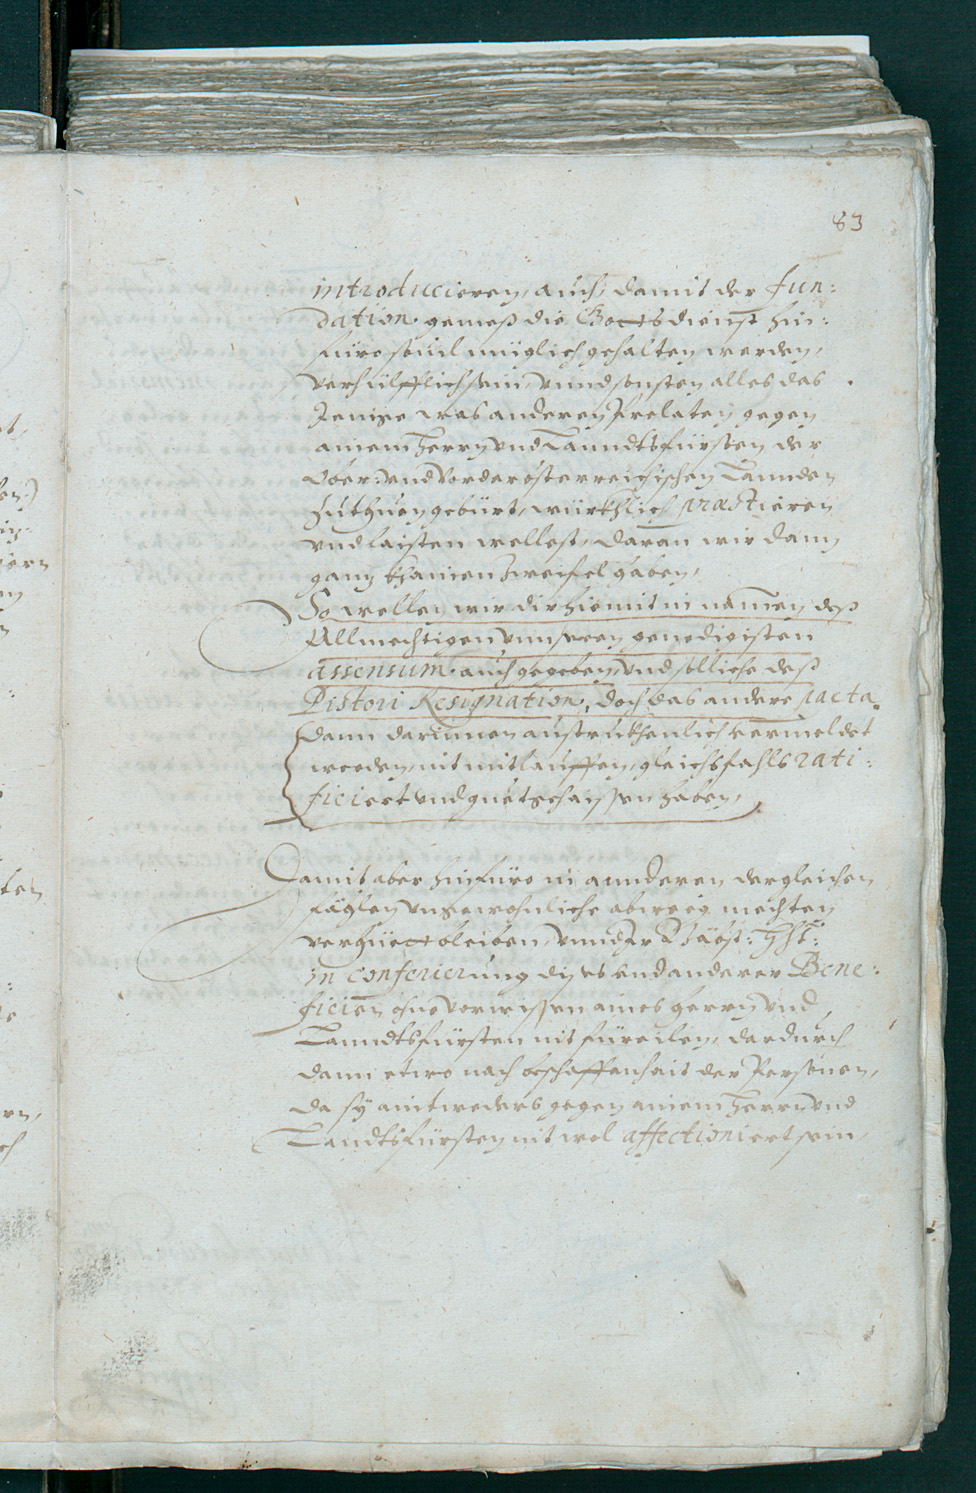 83
introducieren, auch, damit der fun:
dation gemeß die Gottsdienst hin:
füro souil müglich gehalten werden,
verhülfflich sein, vnnd sonsten alles das
Jenige was anderen Prelaten gegen
ainem Herrn vnd Lanndtsfürsten der
Ober: vnd Vorderösterreichischen Lannden
zuthuen gebürt, würkhlich præstieren
vnd laisten wellest, daran wir dann
ganz khainen zweifel haben,
So wellen wir dir hiemit in namen deß
Allmechtigen vnnseren genedigisten
assensum auch gegeben, vnd solliche deß
Pistori Resignation, doch das andere pacta
dann darinnen austrukhenlich vermeldet
werden, nit mitlauffen, gleichsfahls rati:
ficiert vnd guetgehaissen haben,
Damit aber hinfüro in annderen dergleichen
fählen vngewohnliche abweeg mechten
verhüett bleiben, vnnd Ir Päbst: Hht:
in conferierung diß vnd anderer Bene:
ficien ohne vorwissen aines Herrn vnd
Lanndtsfürsten nit füreilen, dardurch
dann etwo nach beschaffenhait der Personen,
da sy aintweders gegen ainem Herrn vnd
Landtsfürsten nit wol affectioniert sein,